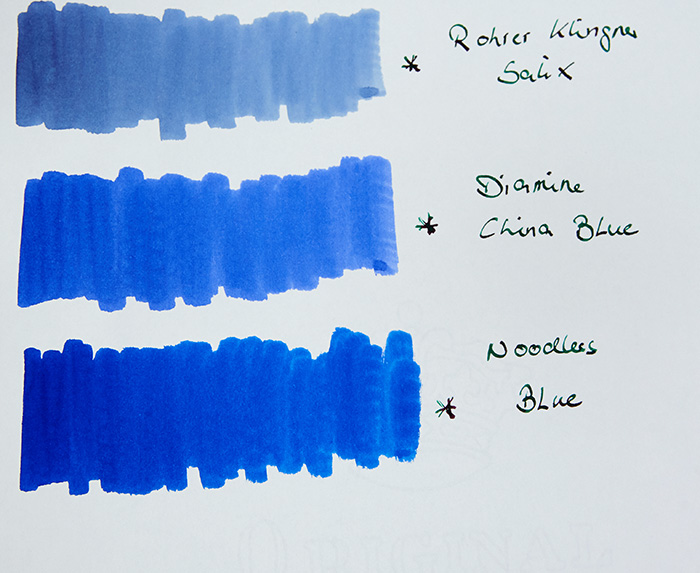 Rohrer Klingner
Salix
Diamine
China Blue
Noodlers
Blue